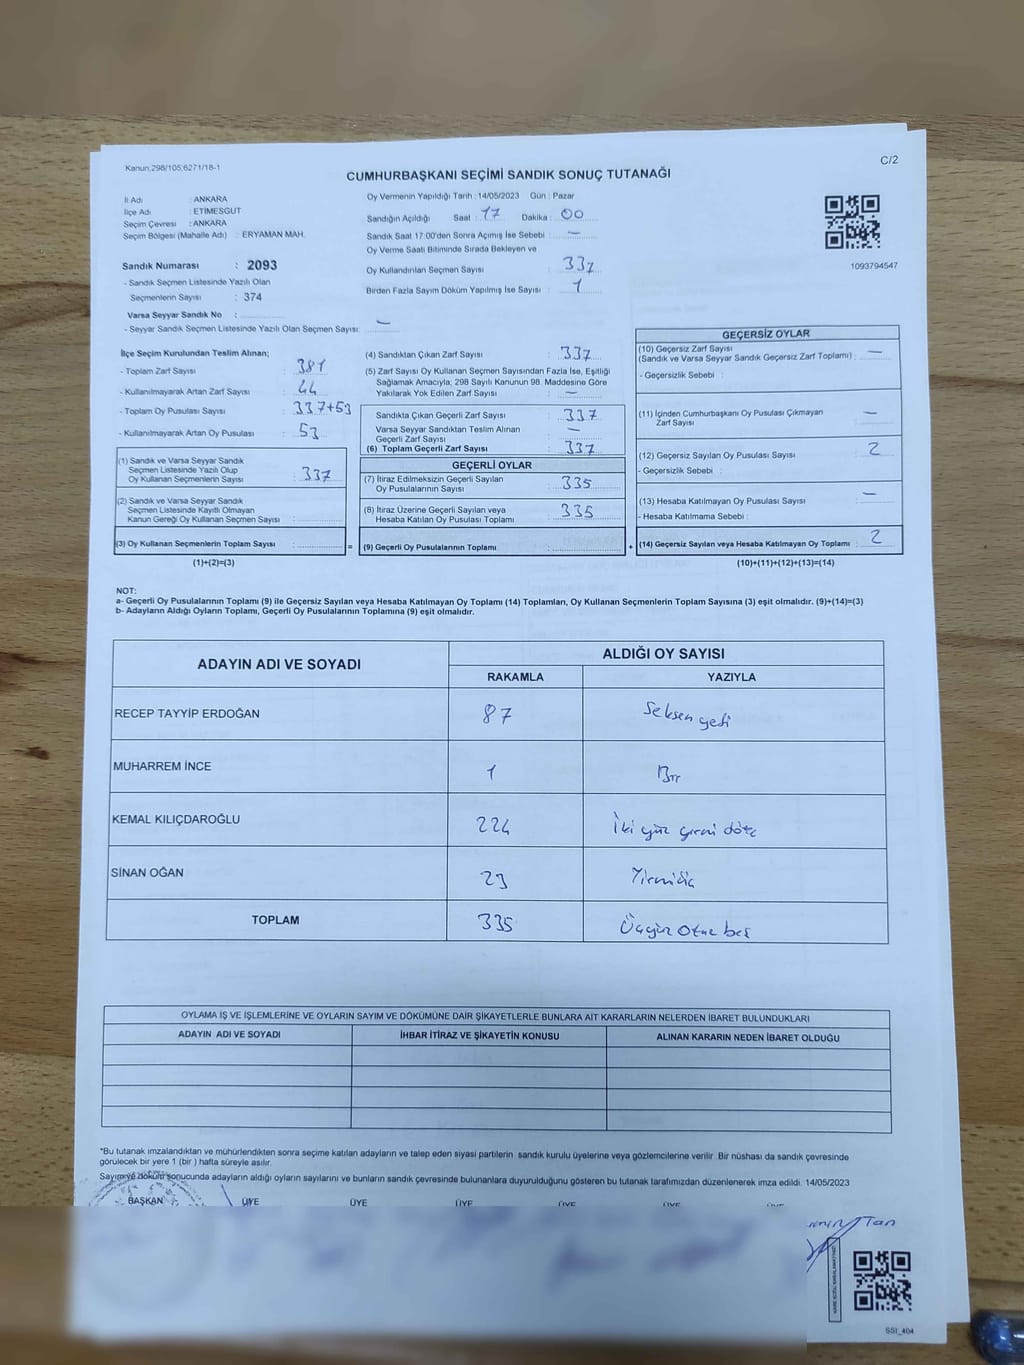 Kanun;298/105;6271/18-1
C/2
CUMHURBAŞKANI SEÇİMİ SANDIK SONUÇ TUTANAĞI
İl Adı : ANKARA
İlçe Adı : ETİMESGUT
Seçim Çevresi : ANKARA
Seçim Bölgesi (Mahalle Adı) : ERYAMAN MAH.
Oy Vermenin Yapıldığı Tarih : 14/05/2023 Gün : Pazar
Sandığın Açıldığı Saat : 17 Dakika : 00
Sandık Saat 17:00'den Sonra Açımış İse Sebebi : —
Oy Verme Saati Bitiminde Sırada Bekleyen ve
Oy Kullandırılan Seçmen Sayısı : 337
Birden Fazla Sayım Döküm Yapılmış İse Sayısı : 1
1093794547
Sandık Numarası : 2093
- Sandık Seçmen Listesinde Yazılı Olan
Seçmenlerin Sayısı : 374
Varsa Seyyar Sandık No :
- Seyyar Sandık Seçmen Listesinde Yazılı Olan Seçmen Sayısı: —
İlçe Seçim Kurulundan Teslim Alınan;
- Toplam Zarf Sayısı : 381
- Kullanılmayarak Artan Zarf Sayısı : 44
- Toplam Oy Pusulası Sayısı : 337+53
- Kullanılmayarak Artan Oy Pusulası : 53
(1) Sandık ve Varsa Seyyar Sandık
Seçmen Listesinde Yazılı Olup
Oy Kullanan Seçmenlerin Sayısı : 337
(2) Sandık ve Varsa Seyyar Sandık
Seçmen Listesinde Kayıtlı Olmayan
Kanun Gereği Oy Kullanan Seçmen Sayısı :
(3) Oy Kullanan Seçmenlerin Toplam Sayısı : =
(1)+(2)=(3)
(4) Sandıktan Çıkan Zarf Sayısı : 337
(5) Zarf Sayısı Oy Kullanan Seçmen Sayısından Fazla İse, Eşitliği
Sağlamak Amacıyla; 298 Sayılı Kanunun 98. Maddesine Göre
Yakılarak Yok Edilen Zarf Sayısı : —
Sandıkta Çıkan Geçerli Zarf Sayısı : 337
Varsa Seyyar Sandıktan Teslim Alınan
Geçerli Zarf Sayısı : —
(6) Toplam Geçerli Zarf Sayısı : 337
GEÇERLİ OYLAR
(7) İtiraz Edilmeksizin Geçerli Sayılan
Oy Pusulalarının Sayısı : 335
(8) İtiraz Üzerine Geçerli Sayılan veya
Hesaba Katılan Oy Pusulası Toplamı : 335
(9) Geçerli Oy Pusulalarının Toplamı : +
GEÇERSİZ OYLAR
(10) Geçersiz Zarf Sayısı
(Sandık ve Varsa Seyyar Sandık Geçersiz Zarf Toplamı) : —
- Geçersizlik Sebebi :
(11) İçinden Cumhurbaşkanı Oy Pusulası Çıkmayan
Zarf Sayısı : —
(12) Geçersiz Sayılan Oy Pusulası Sayısı : 2
- Geçersizlik Sebebi :
(13) Hesaba Katılmayan Oy Pusulası Sayısı : —
- Hesaba Katılmama Sebebi :
(14) Geçersiz Sayılan veya Hesaba Katılmayan Oy Toplamı : 2
(10)+(11)+(12)+(13)=(14)
NOT:
a- Geçerli Oy Pusulalarının Toplamı (9) ile Geçersiz Sayılan veya Hesaba Katılmayan Oy Toplamı (14) Toplamları, Oy Kullanan Seçmenlerin Toplam Sayısına (3) eşit olmalıdır. (9)+(14)=(3)
b- Adayların Aldığı Oyların Toplamı, Geçerli Oy Pusulalarının Toplamına (9) eşit olmalıdır.
ADAYIN ADI VE SOYADI ALDIĞI OY SAYISI
RAKAMLA YAZIYLA
RECEP TAYYİP ERDOĞAN 87 Seksen yedi
MUHARREM İNCE 1 Bir
KEMAL KILIÇDAROĞLU 224 İki yüz yirmi dört
SİNAN OĞAN 23 Yirmiüç
TOPLAM 335 Üçyüz otuz beş
OYLAMA İŞ VE İŞLEMLERİNE VE OYLARIN SAYIM VE DÖKÜMÜNE DAİR ŞİKAYETLERLE BUNLARA AİT KARARLARIN NELERDEN İBARET BULUNDUKLARI
ADAYIN ADI VE SOYADI İHBAR İTİRAZ VE ŞİKAYETİN KONUSU ALINAN KARARIN NEDEN İBARET OLDUĞU
*Bu tutanak imzalandıktan ve mühürlendikten sonra seçime katılan adayların ve talep eden siyasi partilerin sandık kurulu üyelerine veya gözlemcilerine verilir. Bir nüshası da sandık çevresinde
görülecek bir yere 1 (bir) hafta süreyle asılır.
Sayım ve döküm sonucunda adayların aldığı oyların sayılarını ve bunların sandık çevresinde bulunanlara duyurulduğunu gösteren bu tutanak tarafımızdan düzenlenerek imza edildi. 14/05/2023
BAŞKAN ÜYE ÜYE ÜYE ÜYE ÜYE
Tan
SSI_404